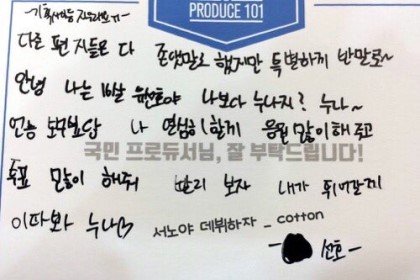 PRODUCE 101
다른 편지들은 다 존댓말로 했지만 특별하게 반말로~
안녕 나는 16살 유선호야 나보다 누나지? 누나~
나 열심히 할게 응원 많이 해주고
국민 프로듀서님, 잘 부탁드립니다!
투표 많이 해줘 빨리 보자 내가 뛰어갈게
이따봐 누나♡
서노야 데뷔하자_cotton
- 선호 -